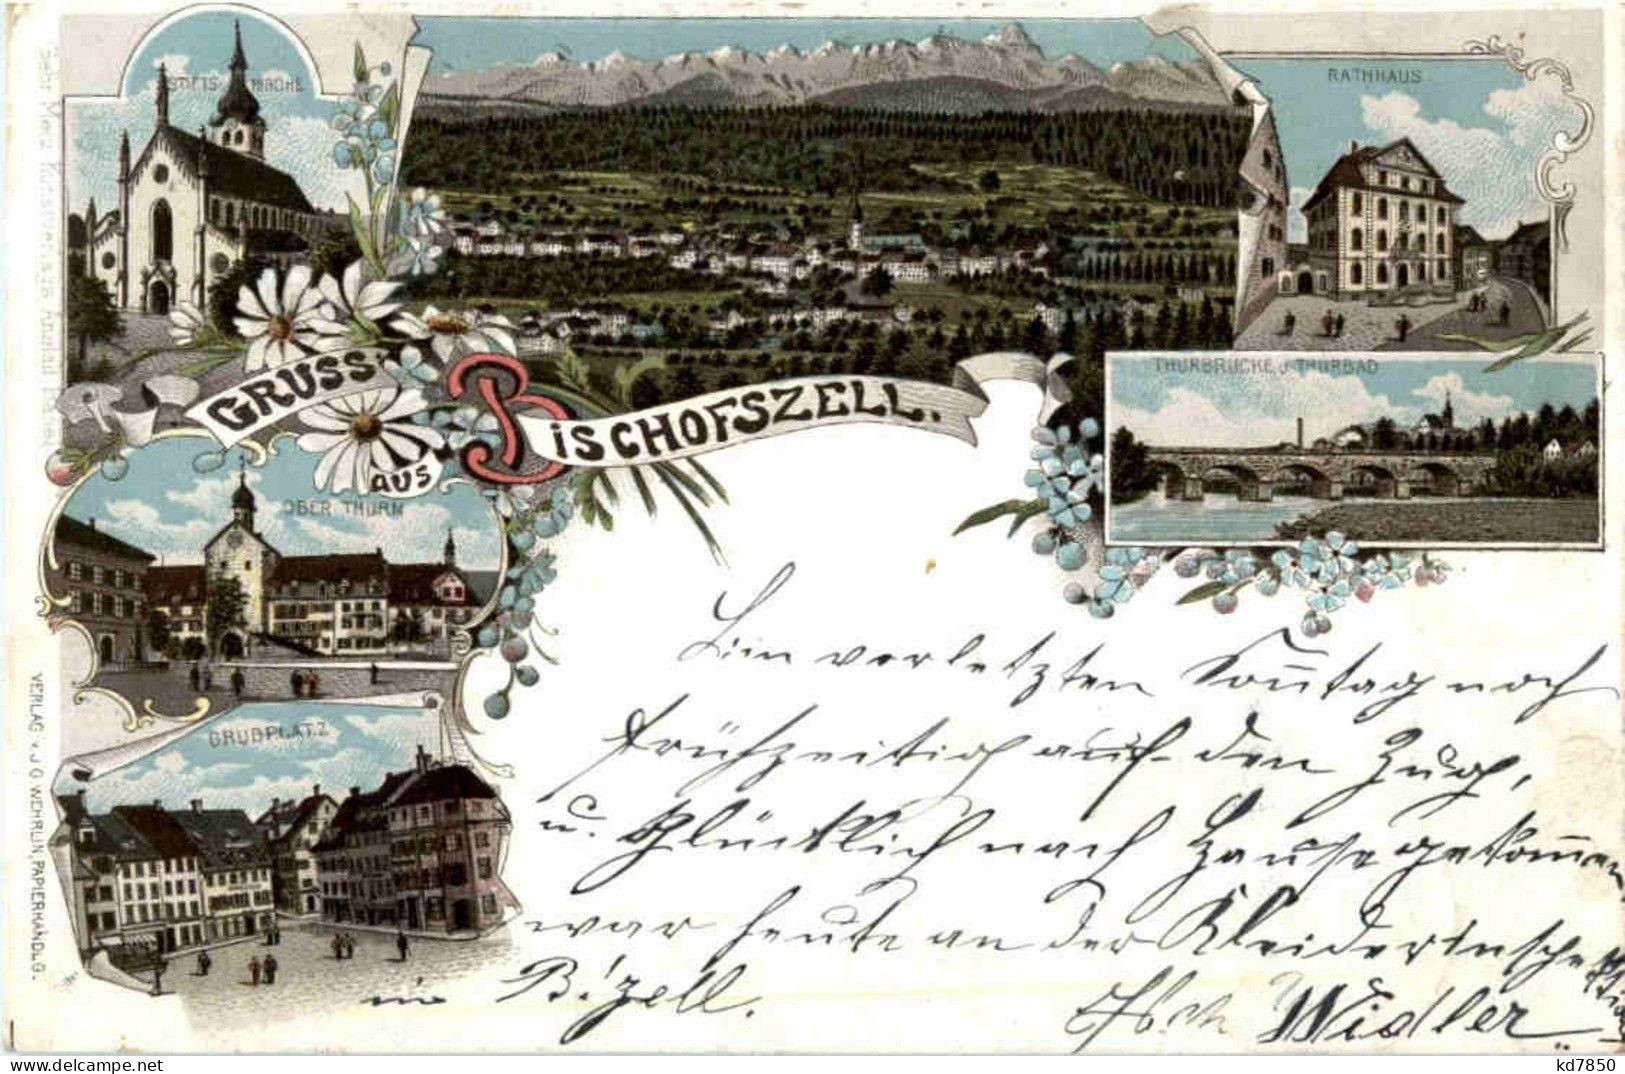 STIFTS KIRCHE
RATHHAUS
GRUSS AUS BISCHOFSZELL.
THURBRÜCKE u. THURBAD
OBER THURM
GRUBPLATZ
VERLAG v. J G WEHRLIN, PAPIERHANDLG.
Bin vorletzten Sonntag noch
frühzeitig auf den Zug,
u. glücklich nach Hause gekommen
war heute an der Kleiderinspektion
in B'zell.
Widler
kd7850